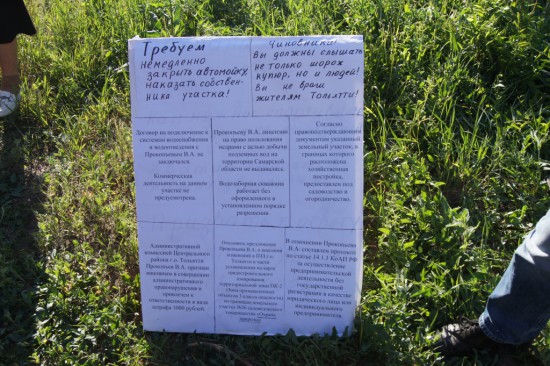 Требуем
немедленно
закрыть автомойку,
наказать собствен-
ника участка!
Чиновники!
Вы должны слышать
не только шорох
купюр, но и людей!
Вы не враги
жителям Тольятти!
Договор на подключение к
системам водоснабжения
и водоотведения с
Прокопьевым В.А. не
заключался.
Коммерческая
деятельность на данном
участке не
предусмотрена.
Прокопьеву В.А. лицензии
на право пользования
недрами с целью добычи
подземных вод на
территории Самарской
области не выдавались.
Водозаборная скважина
работает без
оформленного в
установленном порядке
разрешения.
Согласно
правоподтверждающим
документам указанный
земельный участок, в
границах которого
расположена
хозяйственная
постройка,
предоставлен под
садоводство и
огородничество.
Административной
комиссией Центрального
района г.о. Тольятти
Прокопьев В.А. признан
виновным в совершении
административного
правонарушения и
привлечен к
ответственности в виде
штрафа 1000 рублей
В.А. о внесении
изменений в ПЗЗ г.о.
Тольятти в части
установления на карте
территориальной зоны ПК-2
земельного
В отношении Прокопьева
В.А. составлен протокол
по статье 14.1.1 КоАП РФ
за осуществление
предпринимательской
деятельности без
государственной
регистрации в качестве
юридического лица или
индивидуального
предпринимателя.